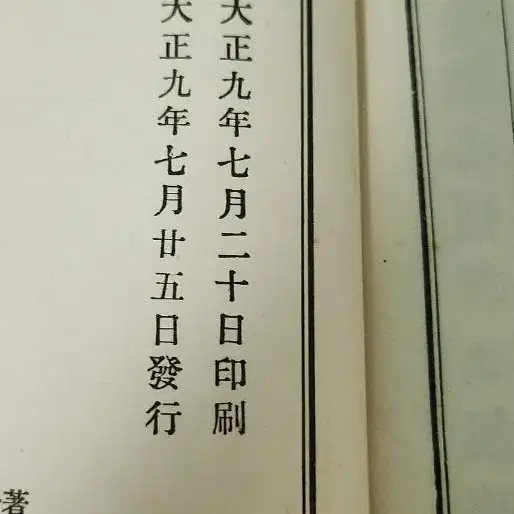 大正九年七月二十日印刷
大正九年七月廿五日發行
著